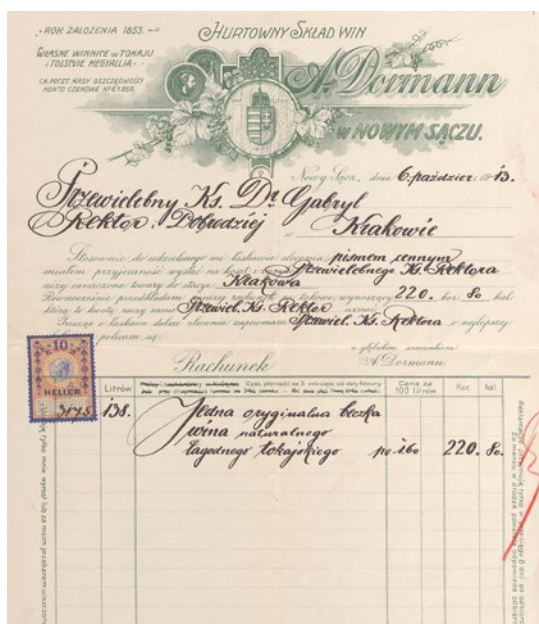 · ROK ZAŁOŻENIA 1853. ·
HURTOWNY SKŁAD WIN
WŁASNE WINNICE w TOKAJU
i TOLSTVIE HEGYALLIA ·
C.K. POCZT. KASY OSZCZĘDNOŚCI
KONTO CZEKOWE № 61.858.
A. Dormann
w NOWYM SĄCZU.
Nowy Sącz, dnia 6. paździer: 1913.
Przewielebny Ks. Dr Gabryl
Rektor
w Krakowie
Stosownie do udzielonego mi łaskawie zlecenia pismem cennym
miałem przyjemność wysłać na koszt i Przewielebnego Ks. Rektora
niżej oznaczone towary do stacyi Krakowa
Równocześnie przedkładam rachunek na takowe, wynoszący 220. kor. 80 hal.
którą to kwotę raczy mnie Przewiel. Ks. Rektor uznać.
Prosząc o łaskawe dalsze zlecenia zapewniam Przewiel. Ks. Rektora o najlepszej
polecam się
z głębokim szacunkiem
A. Dormann.
Rachunek
10
HELLER
3175
Litrów
Cena za
100 litrów
Kor.
hal.
138. Jedna oryginalna beczka
wina naturalnego
łagodnego tokajskiego po 1.60 220. 80.